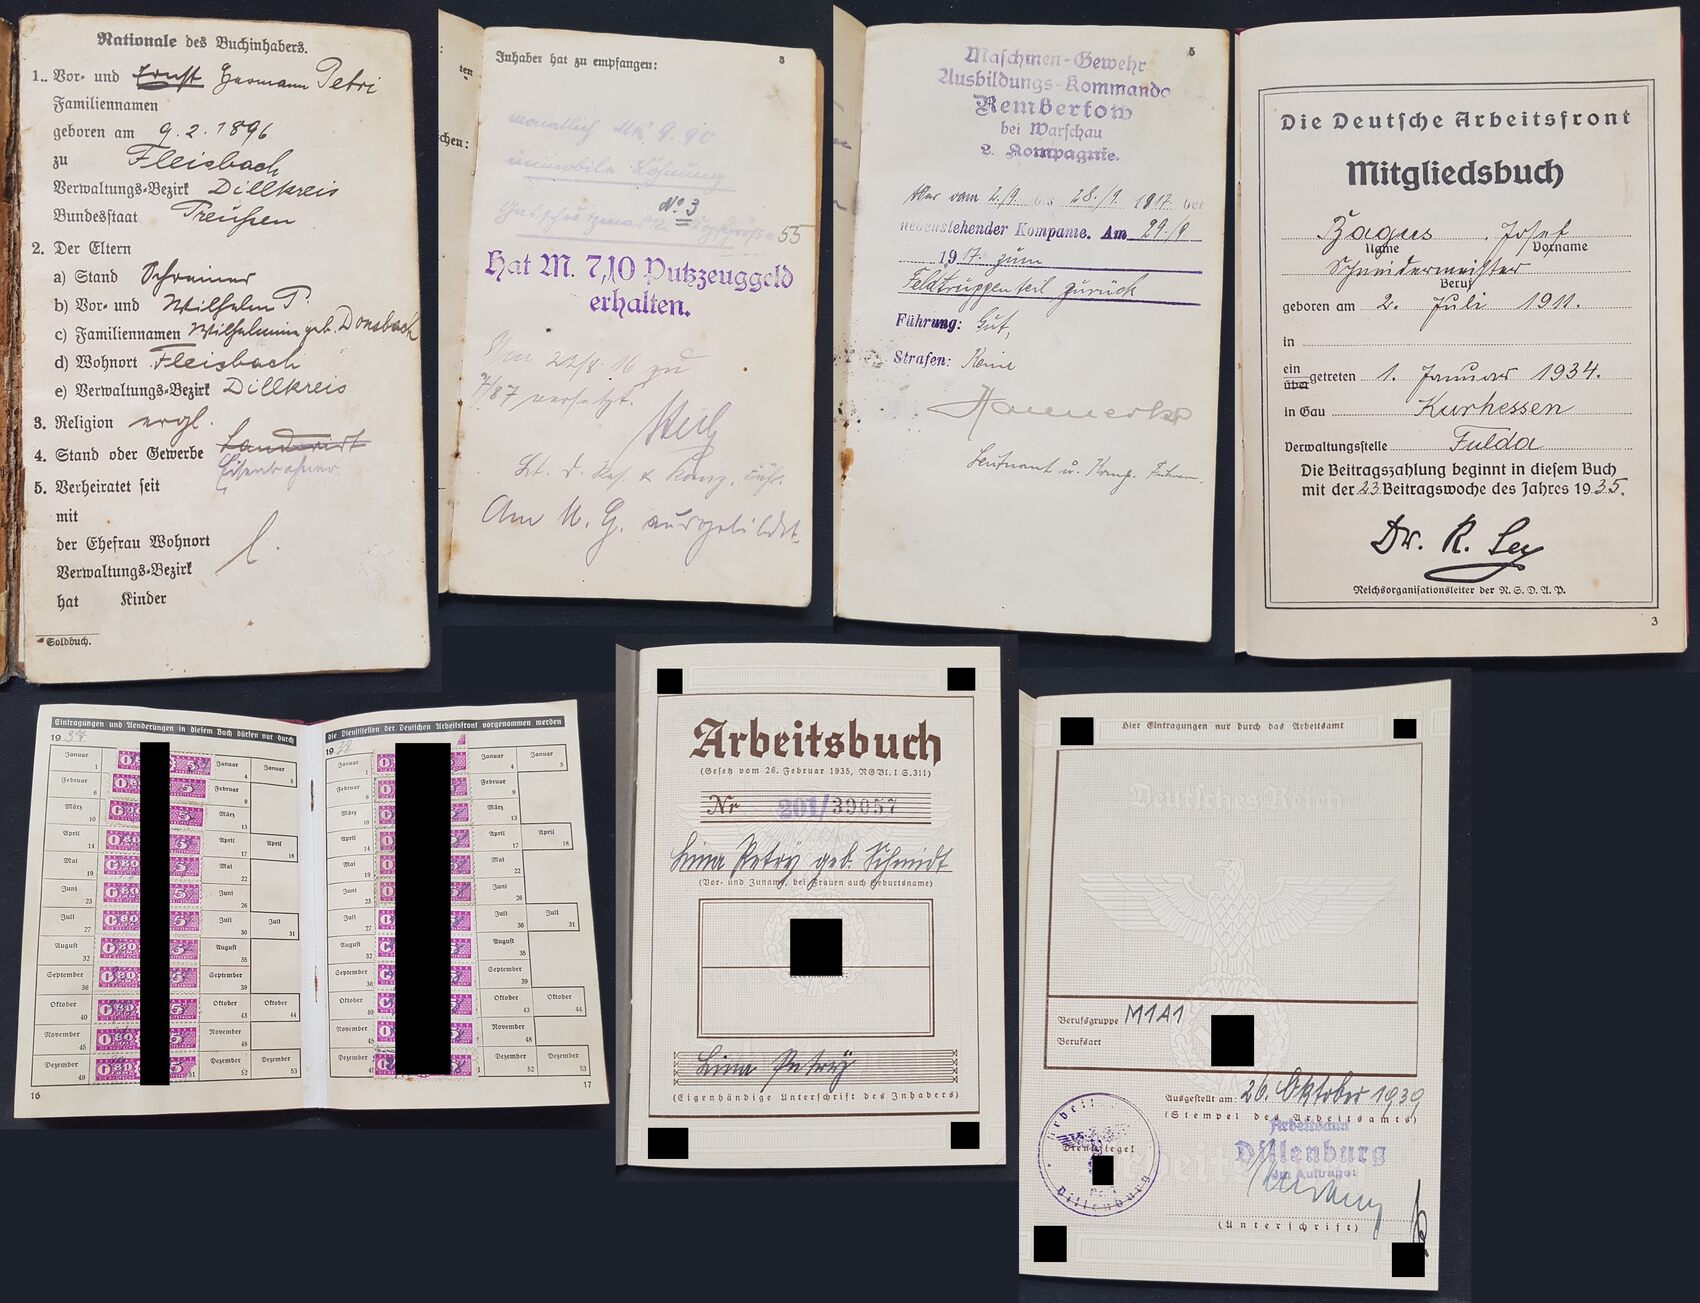 Nationale des Buchinhabers.
1. Vor- und Ernst Hermann Petri
Familiennamen
geboren am 9. 2. 1896
zu Fleisbach
Verwaltungs-Bezirk Dillkreis
Bundesstaat Preußen
2. Der Eltern
a) Stand Schreiner
b) Vor- und Wilhelm P.
c) Familiennamen Wilhelmine geb. Donsbach
d) Wohnort Fleisbach
e) Verwaltungs-Bezirk Dillkreis
3. Religion evgl.
4. Stand oder Gewerbe Landwirt
Eisenbahner
5. Verheiratet seit
mit
der Ehefrau Wohnort
Verwaltungs-Bezirk
hat Kinder
Soldbuch.
Inhaber hat zu empfangen:
3
monatlich Mk 9.90
immobile Löhnung
No 3
55
Hat M. 7,10 Putzzeuggeld
erhalten.
22/8. 16 zu
7/87 versetzt.
Lt. d. Res. & Komp. Führ.
Am M. G. ausgebildet.
5
Maschinen-Gewehr
Ausbildungs-Kommando
Rembertow
bei Warschau
2. Kompagnie.
War vom 2./9. bis 28./9. 1917 bei
nebenstehender Kompanie. Am 29./9
1917 zum
Feldtruppenteil zurück
Führung: Gut,
Strafen: Keine
Leutnant u. Komp. Führer.
Die Deutsche Arbeitsfront
Mitgliedsbuch
Zagus, Josef
Name Vorname
Schneidermeister
Beruf
geboren am 2. Juli 1911.
in
ein
über getreten 1. Januar 1934.
in Gau Kurhessen
Verwaltungsstelle Fulda
Die Beitragszahlung beginnt in diesem Buch
mit der 23 Beitragswoche des Jahres 1935.
Dr. R. Ley
Reichsorganisationsleiter der N.S.D.A.P.
3
Eintragungen und Aenderungen in diesem Buch dürfen nur durch
19 37
Januar 1 Januar 4 Januar 5
Februar 6 Februar 9
März 10 März 13
April 14 April 17 April 18
Mai 19 Mai 22
Juni 23 Juni 26
Juli 27 Juli 30 Juli 31
August 32 August 35
September 36 September 39
Oktober 40 Oktober 43 Oktober 44
November 45 November 48
Dezember 49 51 Dezember 52 Dezember 53
16
die Dienststellen der Deutschen Arbeitsfront vorgenommen werden
19 38
Januar 1 Januar 4 Januar 5
Februar 6 Februar 9
März 10 März 13
April 14 April 17 April 18
Mai 19 Mai 22
Juni 23 Juni 26
Juli 27 Juli 30 Juli 31
August 32 August 35
September 36 September 39
Oktober 40 Oktober 43 Oktober 44
November 45 November 48
Dezember Dezember 52 Dezember 53
17
Arbeitsbuch
(Gesetz vom 26. Februar 1935, RGBl. I S.311)
Nr 201/39057
Lina Petry geb. Schmidt
(Vor- und Zuname, bei Frauen auch Geburtsname)
Lina Petry
(Eigenhändige Unterschrift des Inhabers)
Hier Eintragungen nur durch das Arbeitsamt
Deutsches Reich
Berufsgruppe M1A1
Berufsart
Ausgestellt am: 26. Oktober 1939
(Stempel des Arbeitsamts)
Arbeitsamt
Dillenburg
Im Auftrage:
(Unterschrift)
Dienstsiegel
Dillenburg